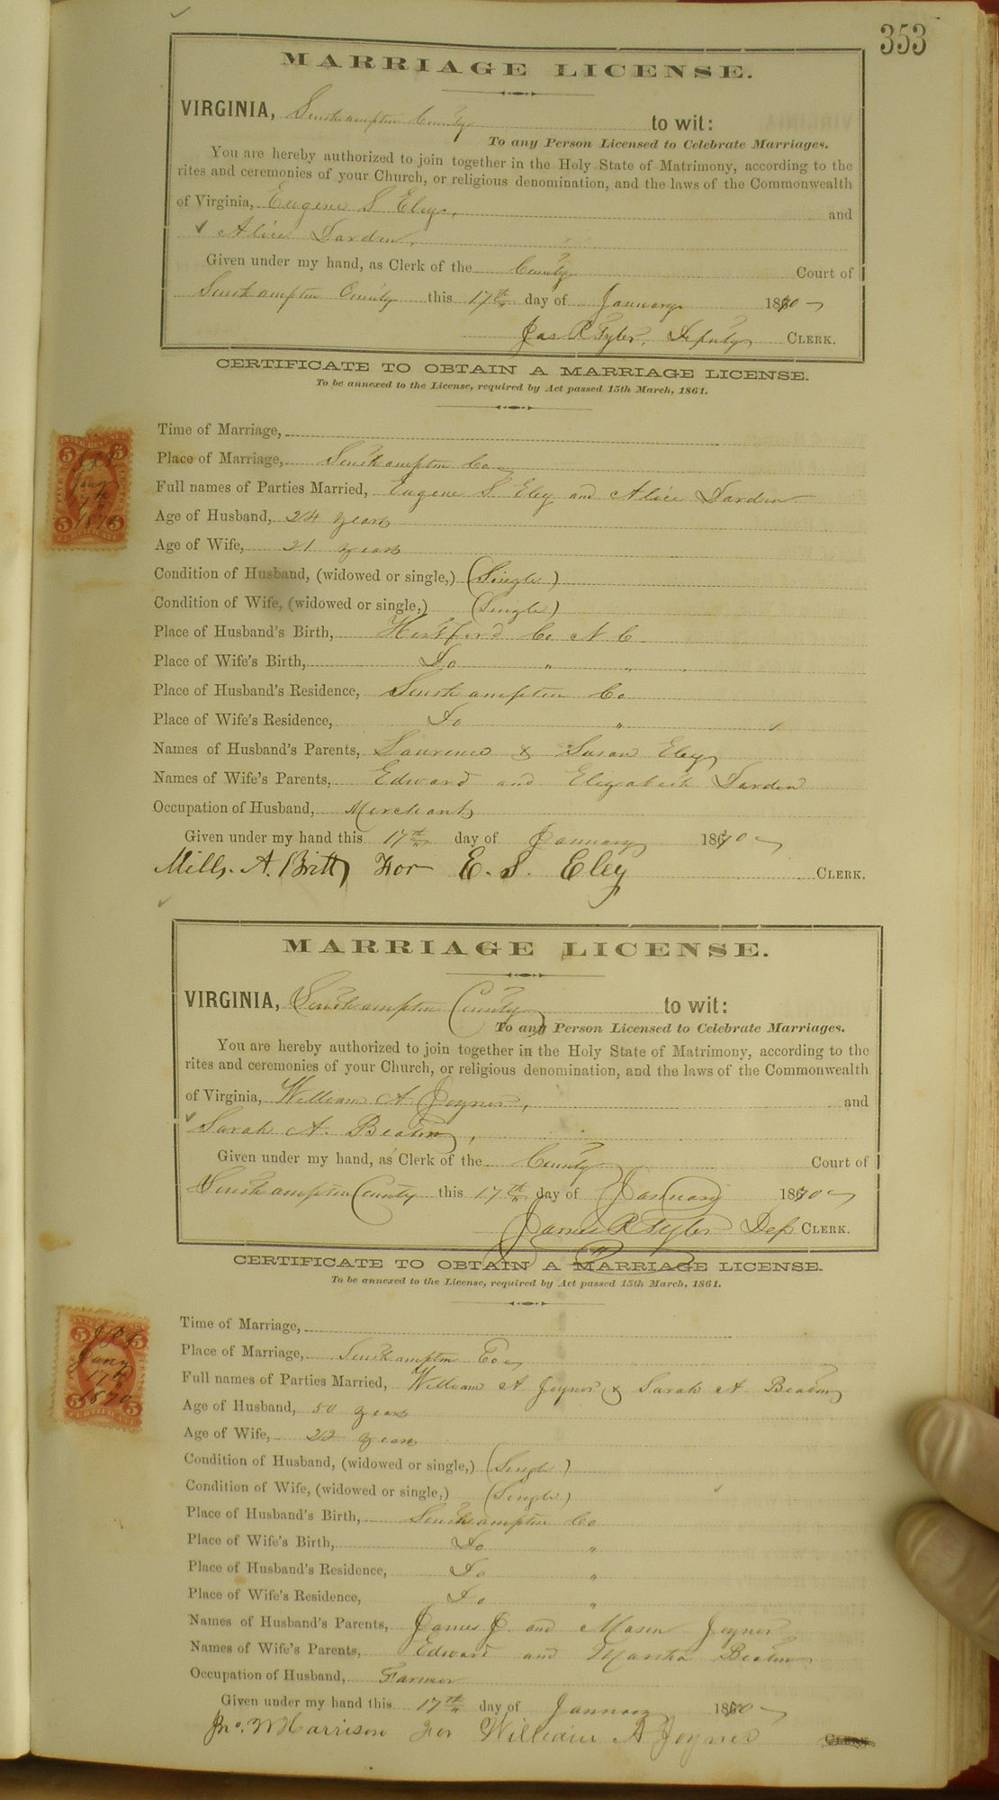 353
MARRIAGE LICENSE.
VIRGINIA, Southampton County to wit:
To any Person Licensed to Celebrate Marriages.
You are hereby authorized to join together in the Holy State of Matrimony, according to the
rites and ceremonies of your Church, or religious denomination, and the laws of the Commonwealth
of Virginia, Eugene S Eley, and
Alice Darden,
Given under my hand, as Clerk of the County Court of
Southampton County this 17th day of January 1870
Jas R Tyler, Deputy CLERK.
CERTIFICATE TO OBTAIN A MARRIAGE LICENSE.
To be annexed to the License, required by Act passed 15th March, 1861.
Time of Marriage,
Place of Marriage, Southampton Co
Full names of Parties Married, Eugene S. Eley and Alice Darden
Age of Husband, 24 years
Age of Wife, 21 years
Condition of Husband, (widowed or single,) (Single)
Condition of Wife, (widowed or single,) (Single)
Place of Husband's Birth, Hertford Co N.C.
Place of Wife's Birth, Do " "
Place of Husband's Residence, Southampton Co
Place of Wife's Residence, Do "
Names of Husband's Parents, Laurence & Susan Eley
Names of Wife's Parents, Edward and Elizabeth Darden
Occupation of Husband, Merchant
Given under my hand this 17th day of January 1870
Mills. A. Britt For E. S. Eley CLERK.
MARRIAGE LICENSE.
VIRGINIA, Southampton County to wit:
To any Person Licensed to Celebrate Marriages.
You are hereby authorized to join together in the Holy State of Matrimony, according to the
rites and ceremonies of your Church, or religious denomination, and the laws of the Commonwealth
of Virginia, William A. Joyner, and
Sarah A. Beaton,
Given under my hand, as Clerk of the County Court of
Southampton County this 17th day of January 1870
James R Tyler Dep CLERK.
CERTIFICATE TO OBTAIN A MARRIAGE LICENSE.
To be annexed to the License, required by Act passed 15th March, 1861.
Time of Marriage,
Place of Marriage, Southampton Co
Full names of Parties Married, William A Joyner & Sarah A. Beaton
Age of Husband, 50 years
Age of Wife, 22 years
Condition of Husband, (widowed or single,) (Single)
Condition of Wife, (widowed or single,) (Single)
Place of Husband's Birth, Southampton Co
Place of Wife's Birth, Do "
Place of Husband's Residence, Do "
Place of Wife's Residence, Do "
Names of Husband's Parents, James J. and Mason Joyner
Names of Wife's Parents, Edward and Martha Beaton
Occupation of Husband, Farmer
Given under my hand this 17th day of January 1870
Jno. W Harrison For William A Joyner CLERK.